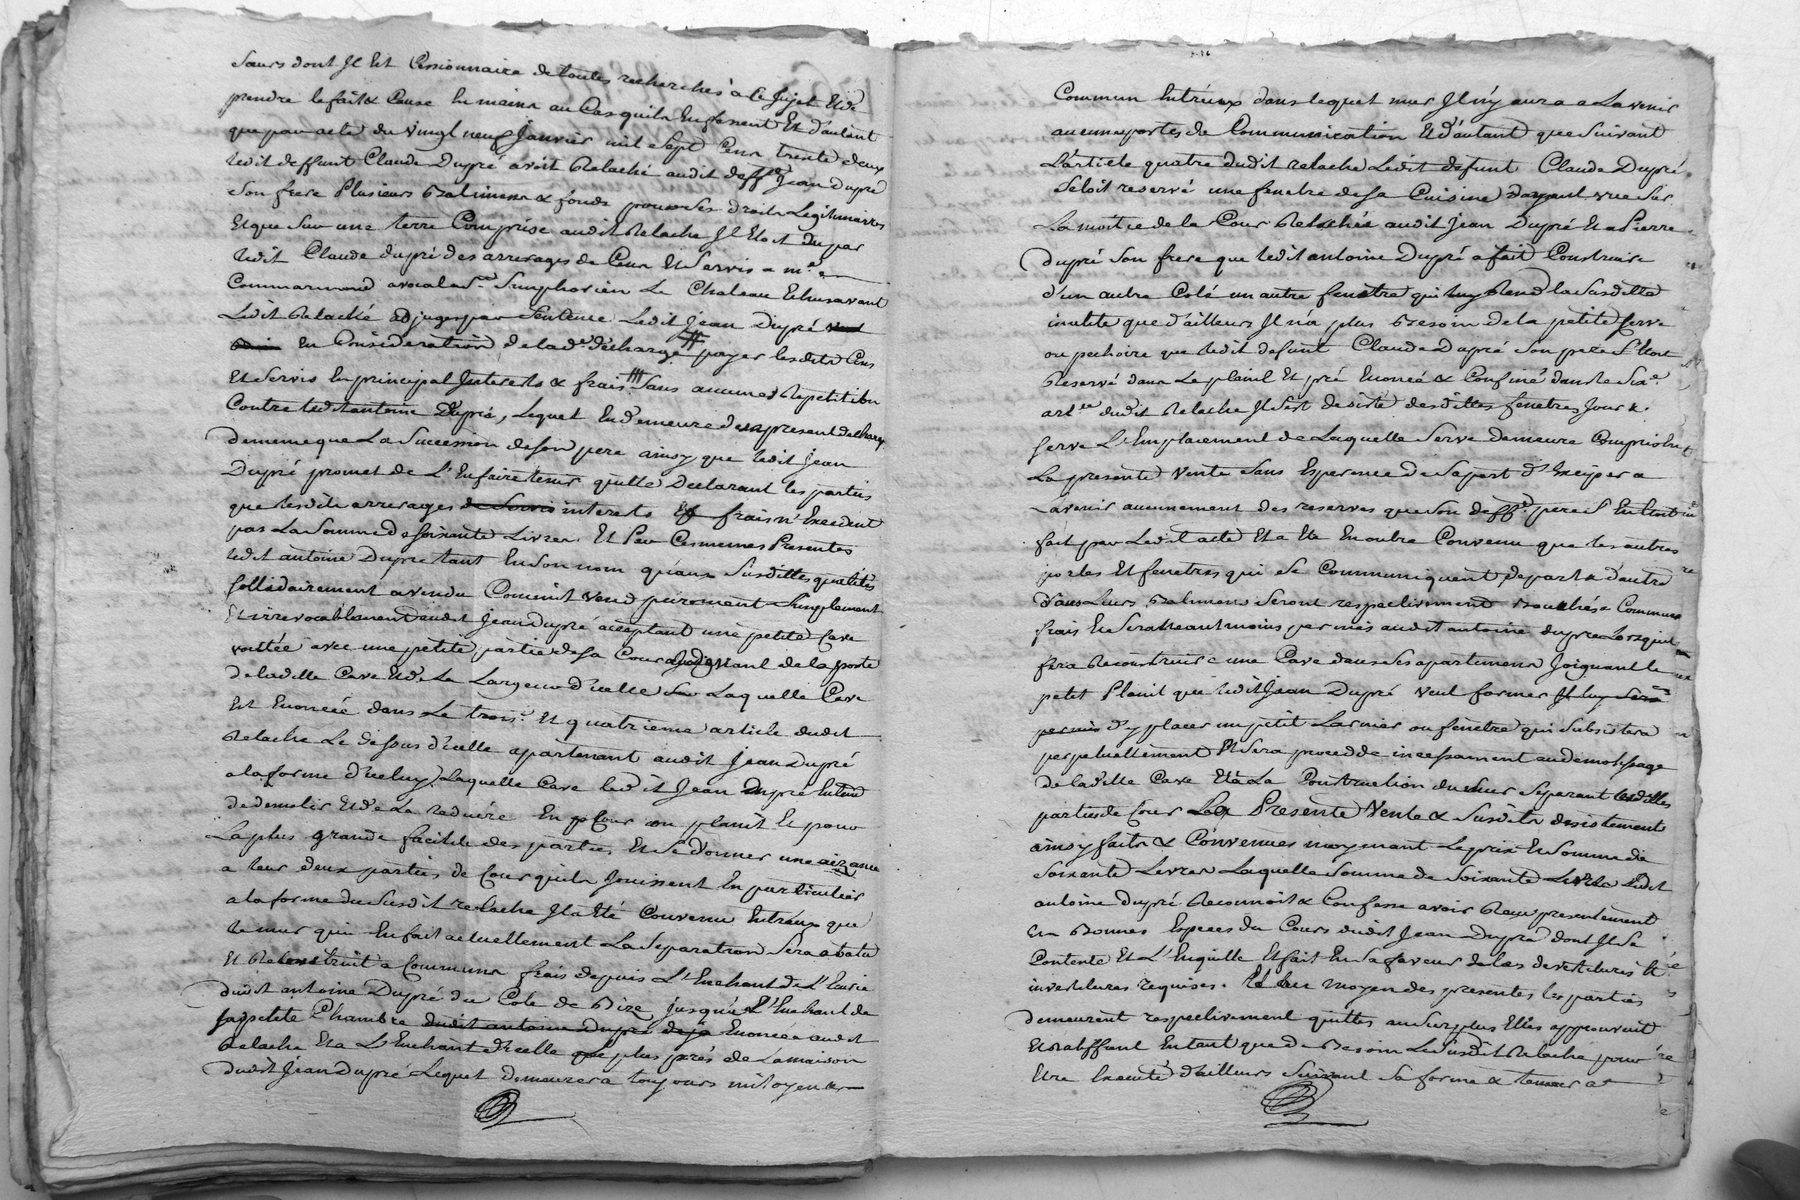 Sœurs dont Il Est Cessionnaire de toutes recherches à Ce Sujet Et de
prendre le fait & Cause En mains au Cas qu'ils En fussent Et d'autant
que par acte du vingt neuf Janvier mil Sept Cens trente deux
Ledit deffunt Claude Dupré avoit Relaché audit deff.t Jean Dupré
Son frere Plusieurs Batimens & fonds pour Ses droits Legitimaires
Et que Sur une terre Comprise audit Relache Il Etoit Du par
Ledit Claude dupré des arrerages de Cens Et Servis a m.e
Commarmond avocat a S.t Simphorien Le Chateau Echus avant
Ledit Relaché adjugés par Sentence Ledit Jean Dupré
En Consideration de la d.e decharge payer lesdits Cens
Et Servis En principal Interests & frais Sans aucune Repetition
Contre Ledit antoine Dupré, Lequel En demeure des apresent decharge
de meme que La Succession de Son pere ainsy que Ledit Jean
Dupré promet de L'En faire tenir quitte Declarant les parties
que lesdits arrerages interests Et frais n'Excedent
pas La Somme de Soixante Livres Et Par Ces memes Presentes
Ledit antoine Dupré tant En Son nom qu'aux Susdittes qualités
Sollidairement a vendu Comme il vend purement Simplement
Et irrevocablement audit Jean Dupré acceptant une petite Cave
voutée avec une petite partie de Sa Cour de la porte
de laditte Cave Et de La Largeur d'icelle Laquelle Cave
Est Enoncée dans Le trois.e Et quatrieme article dudit
Relache Le dessus d'icelle apartenant audit Jean Dupré
a la forme d'iceluy Laquelle Cave Ledit Jean Dupré Entend
de demolir Et de La reduire En Cour ou planit Et pour
La plus grande facilité des parties Et Se donner une aizance
a leur deux parties de Cour qu'ils Jouissent En particulier
a la forme du Susdit relache Il a Eté Convenu Entreux que
le mur qui En fait actuellement La Separation Sera abatu
Et Reconstruit a Communs frais depuis L'Enchant de L'Ecurie
dudit antoine Dupré du Coté de Bize jusqu'a L'Enchant de
Sa petite Chambre dudit antoine Dupré deja Enoncée audit
Relache Et a L'Enchant d'icelle plus près de La maison
dudit Jean Dupré Lequel demeurera toujours mitoyen &
Commun Entreux dans lequel mur Il n'y aura a L'avenir
aucunne portes de Communication Et d'autant que Suivant
L'article quatre dudit relache Ledit defunt Claude Dupré
S'etoit reservé une fenetre de Sa Cuisine ayant vue Sur
La moitie de la Cour Relachée audit Jean Dupré Et a Pierre
dupré Son frere que Ledit antoine Dupré a fait Construire
d'un autre Coté un autre fenetre qui luy Rend la Susditte
inutile que d'ailleurs Il n'a plus Besoin de la petite Serve
ou pechoire que Ledit defunt Claude Dupré Son pere S'Etoit
Reservé dans Le planil Et pré Enoncé & Confiné dans le Six.e
art.le dudit Relache Il S'est desisté desdittes fenetres Jour &
Serve L'Emplacement de Laquelle Serve demeure Compris En
La presente Vente Sans Esperance de Sa part d'Exciper a
L'avenir aucunnement des reserves que Son deff.t pere S'En Etoit
fait par Ledit acte Et a Eté En outre Convenu que les autres
portes Et fenetres qui Se Communiquent de part & d'autre
dans Leurs Batimens Seront respectivement Bouchés a Communs
frais Et Sera neantmoins permis audit antoine dupré Lorsqu'il
fera Reconstruire une Cave dans Ses apartemens Joignant le
petit Planit que Ledit Jean Dupré veut former Il luy Sera
permis d'y placer un petit Larmier ou fenetre qui Subsistera
perpetuellement Et Sera procedé incessament au demolissage
de laditte Cave Et a La Construction du mur Separant lesdittes
parties de Cour La Presente Vente & Susdits desistements
ainsy faits & Convenues moyennant Le prix Et Somme de
Soixante Livres Laquelle Somme de Soixante Livres Ledit
antoine dupré Reconnoit & Confesse avoir Reçu presentement
En Bonnes Especes du Cours dudit Jean Dupré dont Il Se
Contente Et L'En quitte Et fait En Sa faveur de Las devestitures Et
investitures requises. Et au moyen des presentes les parties
demeurent respectivement quittes au Surplus Elles approuvent
Et Ratiffient En tant que de Besoin Le Susdit Relache pour
Etre Executé d'ailleurs Suivant Sa forme & teneur a